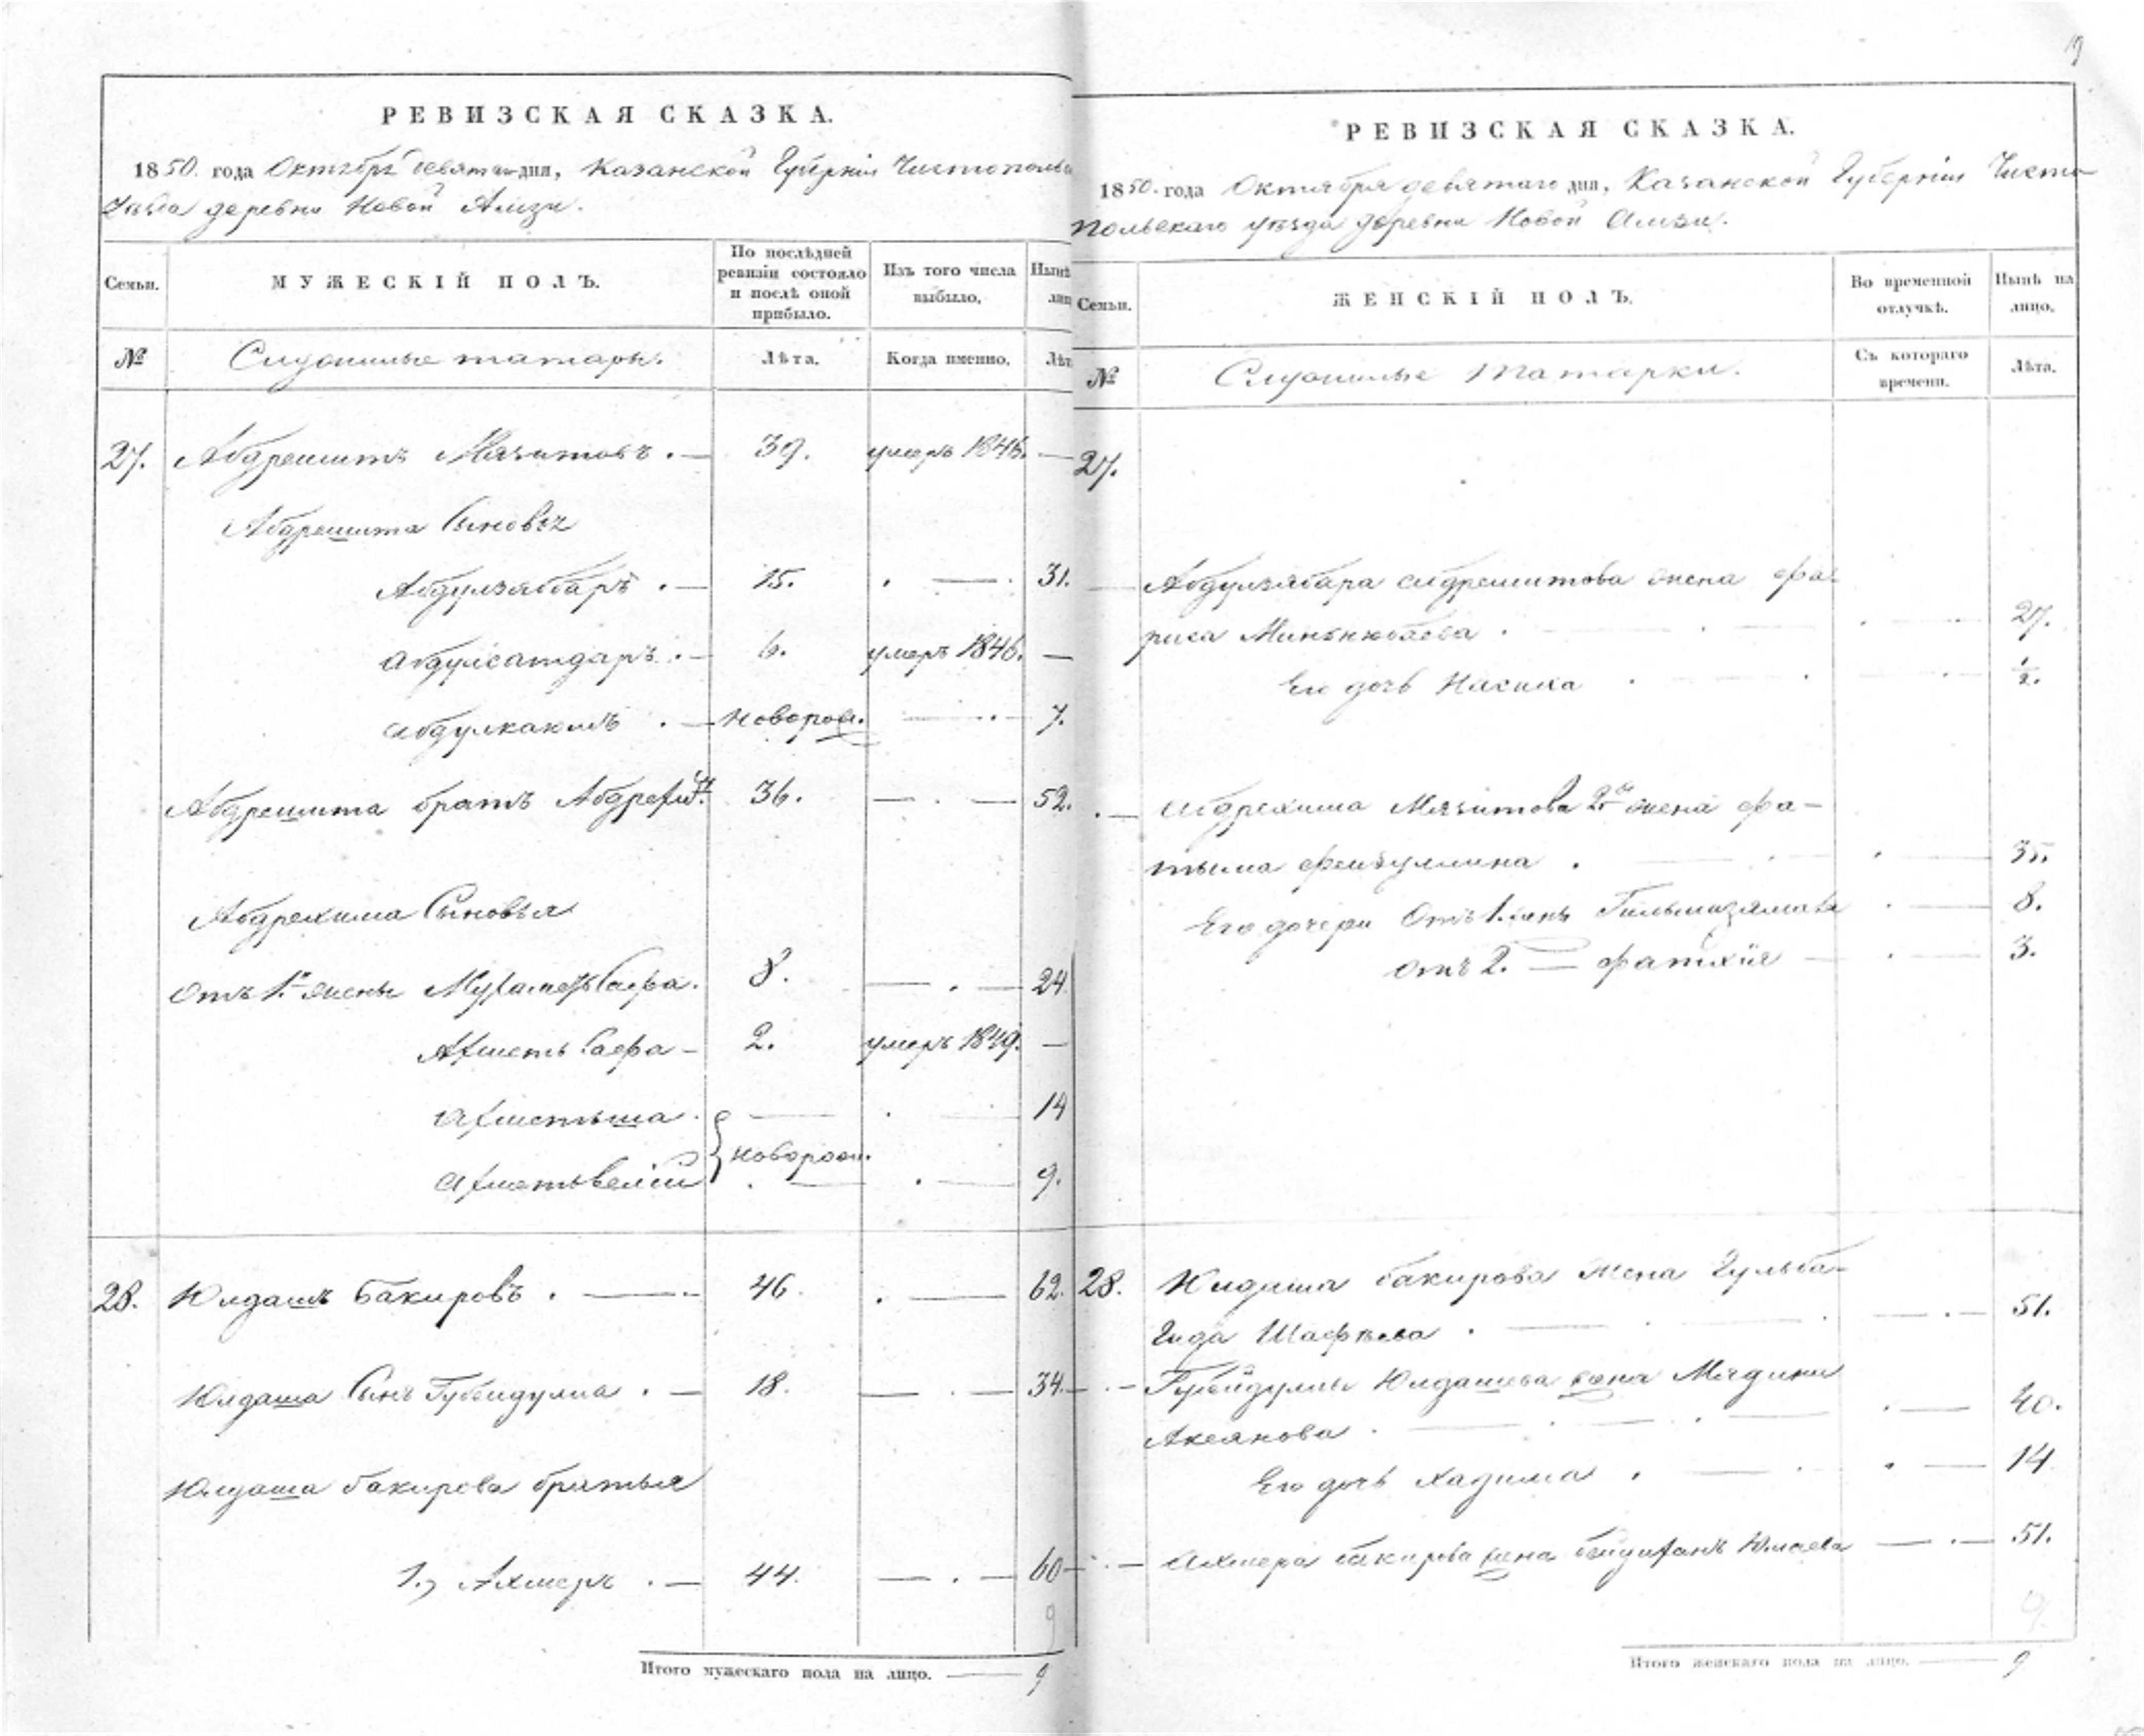 19
РЕВИЗСКАЯ СКАЗКА.
1850. года Октября девятаго дня, Казанской Губерніи Чистопольс
Уѣзда деревни Новой Амзи.
Семьи.
МУЖЕСКІЙ ПОЛЪ.
По послѣдней ревизіи состояло и послѣ оной прибыло.
Изъ того числа выбыло.
Нынѣ лиц
№
татары.
Лѣта.
Когда именно.
Лѣт
27. Абдрешитъ Мязитовъ . — 39. умеръ 1846. —
Абдрешита Сыновья
Абдулзяббаръ . — 15. . — . 31.
Абдулсатдаръ . — 6. умеръ 1846. —
Абдулкаюмъ . — новорож. — . — 7.
Абдрешита братъ Абдрехим. 36. — . — 52.
Абдрехима Сыновья
Отъ 1й жены МухаметьСафа. 8. — . — 24.
АхметьСафа — 2. умеръ 1849. —
Ахметьша . — . — 14
новорож.
Ахметьвелій . — . — 9.
28. Юлдашъ Бакировъ . — 46. . — 62.
Юлдаша Сынъ Губейдулла . — 18. — . — 34.
Юлдаша Бакирова братья
1., Ахмеръ . — 44. — . — 60
9
Итого мужескаго пола на лицо. — 9
РЕВИЗСКАЯ СКАЗКА.
1850. года Октября девятаго дня, Казанской Губерніи Чисто
польскаго уѣзда деревни Новой Амзи.
Семьи.
ЖЕНСКІЙ ПОЛЪ.
Во временной отлучкѣ.
Нынѣ на лицо.
№
татарки.
Съ котораго времени.
Лѣта.
27.
Абдулзябара Абдрешитова жена Фа-
риса . — . — 27.
Его дочь Насиха . — . — 1/2.
Абдрехима Мязитова 2я жена Фа-
тыма Фейзуллина . — . — 35.
Его дочери Отъ 1. жены . — 8.
отъ 2. — Фатхія — . — 3.
28. Юлдаша Бакирова жена Гульба-
гида . — . — 51.
Губейдуллы Юлдашева жена Мядини
Аксянова . — . — 40.
Его дочь Хадима . — . — 14
Ахмера Бакирова жена Юлаева — . — 51.
9.
Итого женскаго пола на лицо. — 9